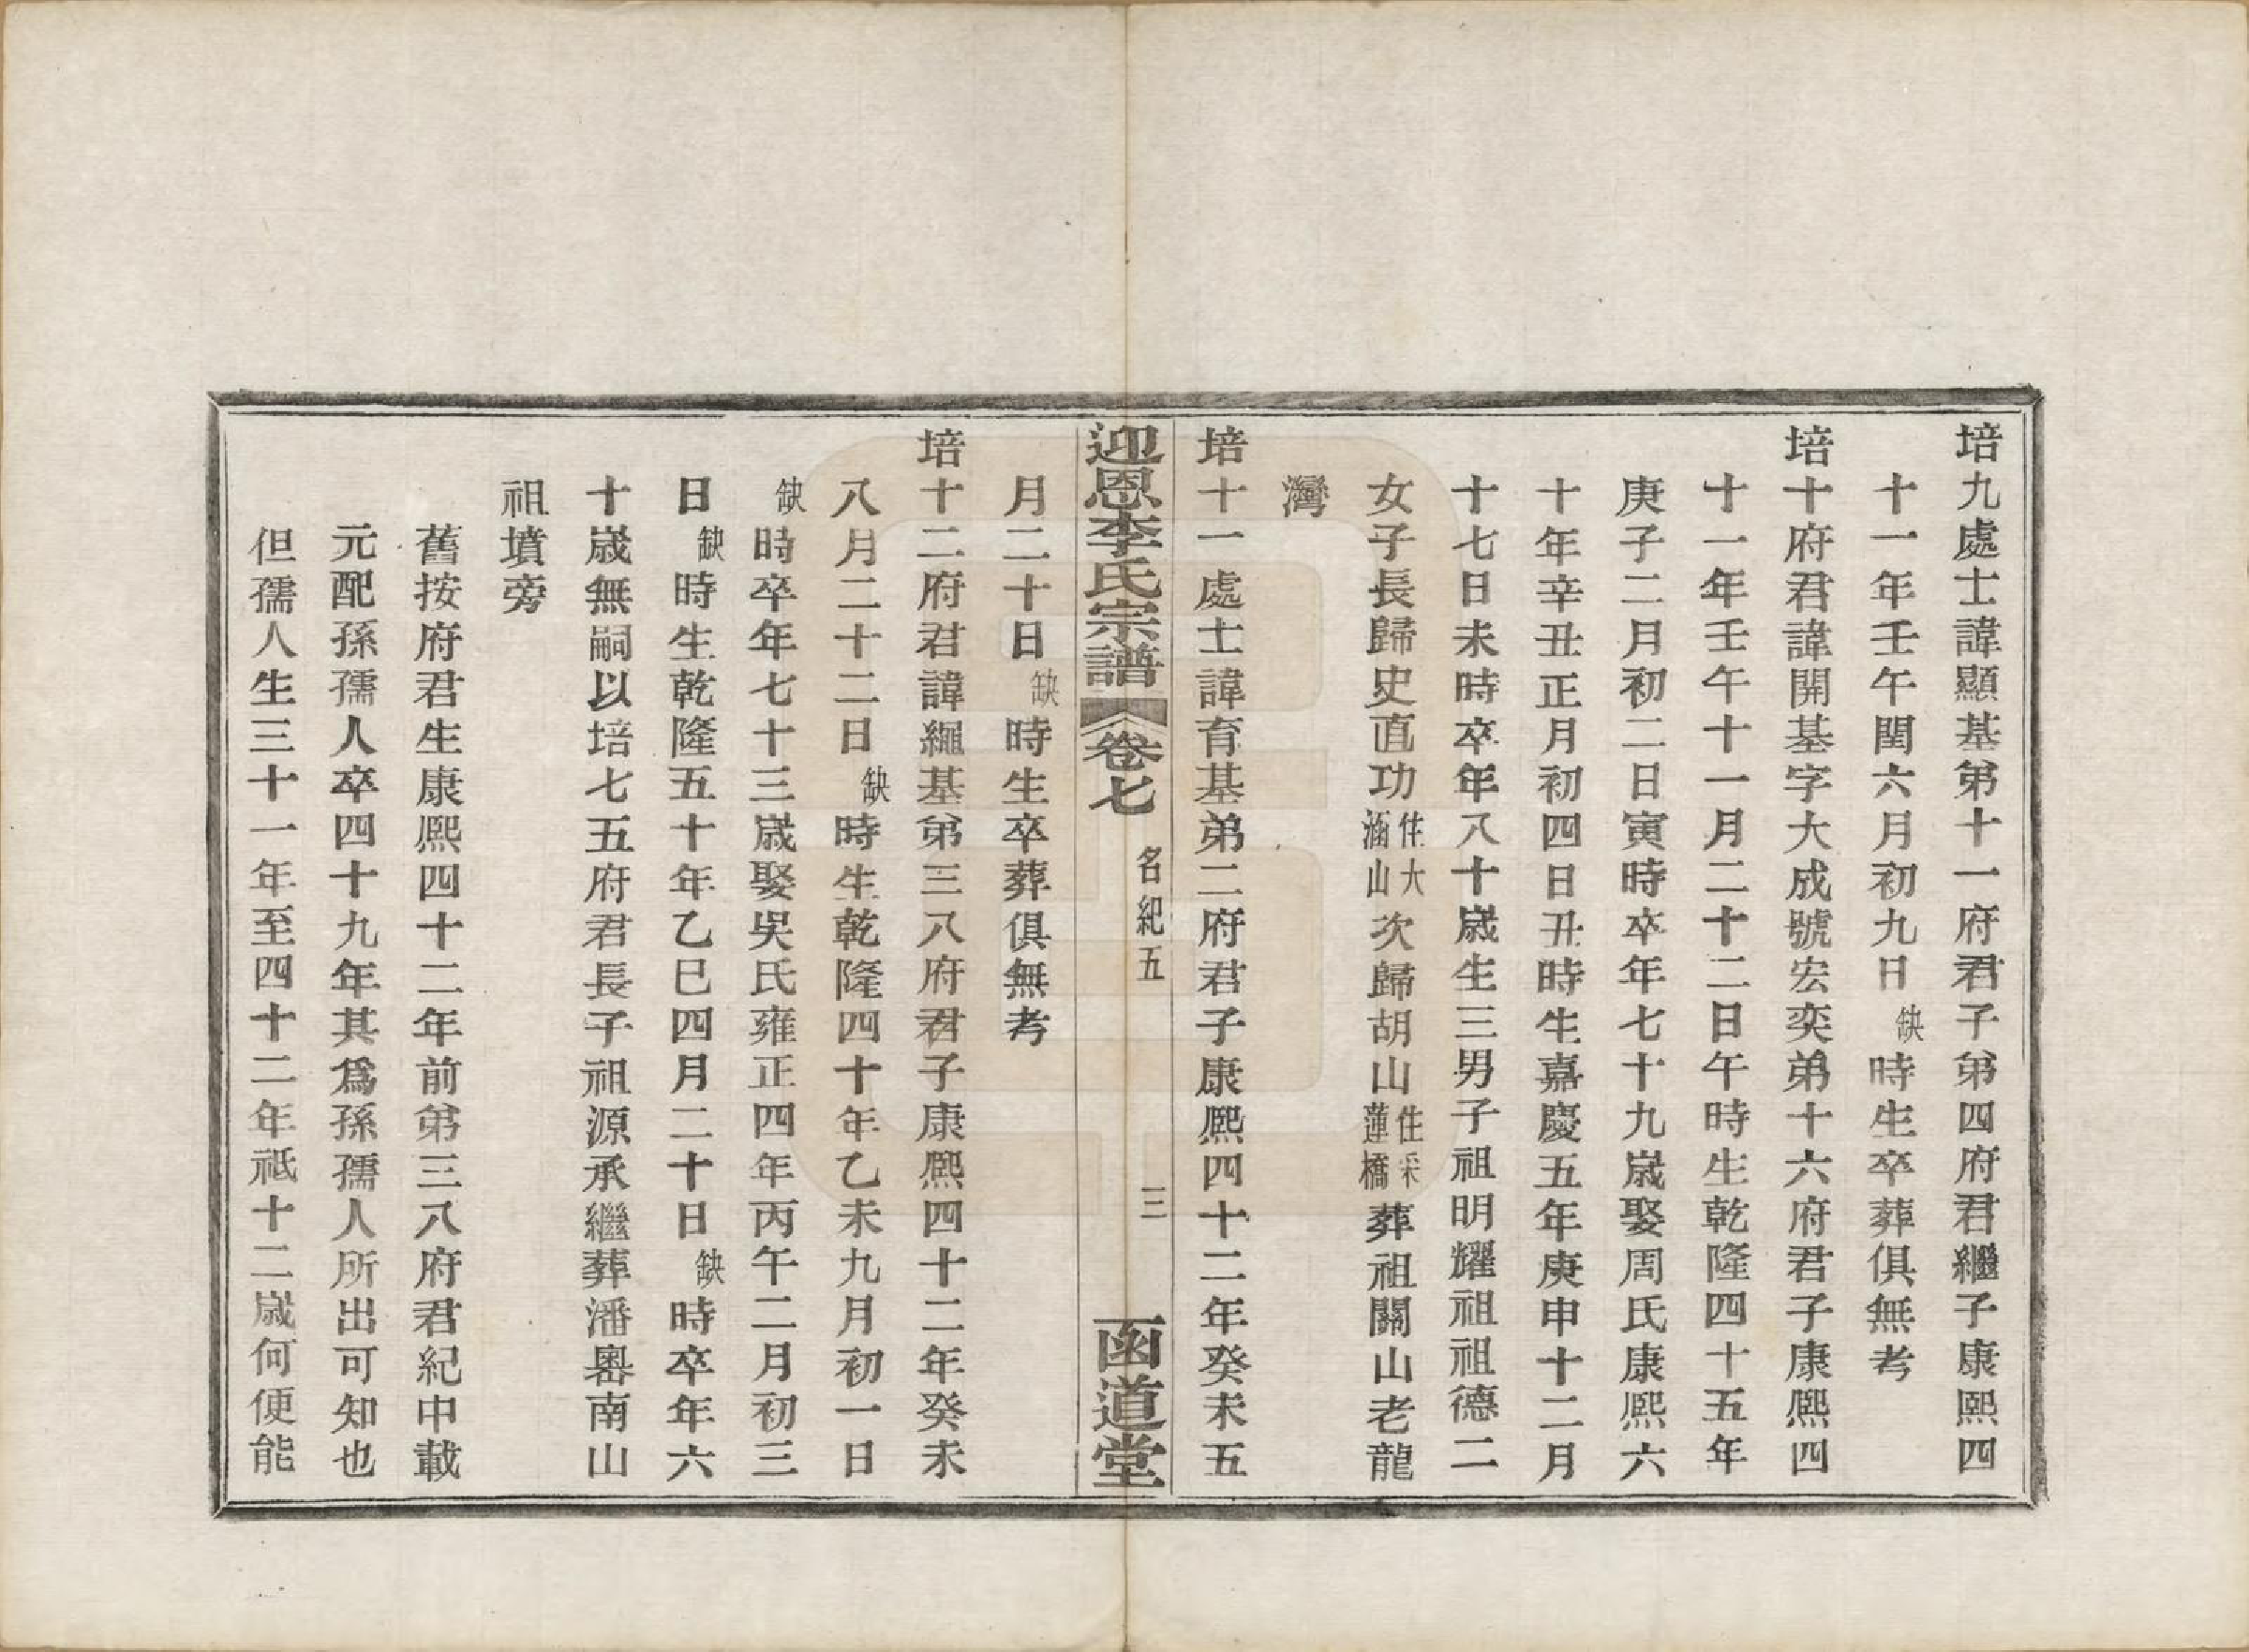 培九處士諱顯基第十一府君子第四府君繼子康熙四
十一年壬午閏六月初九日缺時生卒葬俱無考
培十府君諱開基字大成號宏奕弟十六府君子康熙四
十一年壬午十一月二十二日午時生乾隆四十五年
庚子二月初二日寅時卒年七十九歲娶周氏康熙六
十年辛丑正月初四日丑時生嘉慶五年庚申十二月
十七日未時卒年八十歲生三男子祖明耀祖祖德二
女子長歸史直功住大涵山次歸胡山住采蓮橋葬祖關山老龍
灣
培十一處士諱育基弟二府君子康熙四十二年癸未五
迎恩李氏宗譜 卷七 名紀五 三 函道堂
月二十日缺時生卒葬俱無考
培十二府君諱繩基第三八府君子康熙四十二年癸未
八月二十二日缺時生乾隆四十年乙未九月初一日
缺時卒年七十三歲娶吳氏雍正四年丙午二月初三
日缺時生乾隆五十年乙巳四月二十日缺時卒年六
十歲無嗣以培七五府君長子祖源承繼葬潘嶴南山
祖墳旁
舊按府君生康熙四十二年前第三八府君紀中載
元配孫孺人卒四十九年其為孫孺人所出可知也
但孺人生三十一年至四十二年祗十二歲何便能